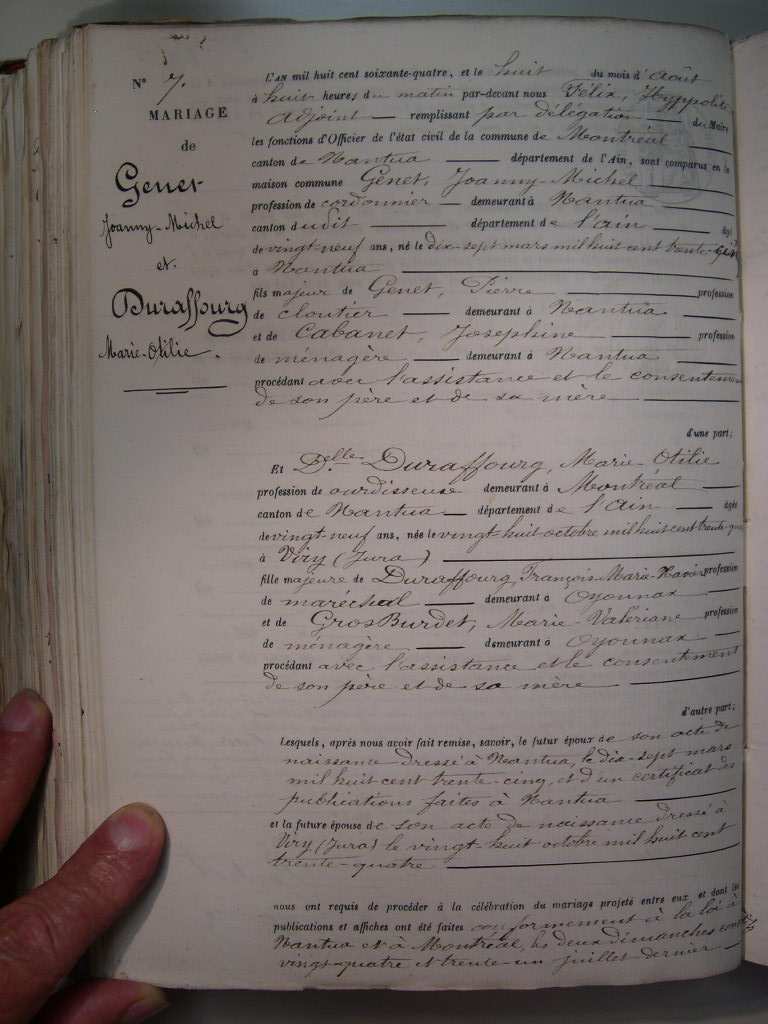 N° 7.
MARIAGE
de
Genet
Joanny-Michel
et
Duraffourg
Marie-Otilie.
L'AN mil huit cent soixante-quatre, et le huit du mois d'Août
à huit heures du matin par-devant nous Félix, Hyppolite
Adjoint remplissant par délégation du Maire
les fonctions d'Officier de l'état civil de la commune de Montréal
canton de Nantua département de l'Ain, sont comparus en la
maison commune Genet, Joanny-Michel
profession de cordonnier demeurant à Nantua
canton dudit département de l'ain âgé
de vingt-neuf ans, né le dix-sept mars mil huit cent trente-cinq
à Nantua
fils majeur de Genet, Pierre profession
de cloutier demeurant à Nantua
et de Cabanet, Josephine profession
de ménagère demeurant à Nantua
procédant avec l'assistance et le consentement
de son père et de sa mère
d'une part;
Et Delle Duraffourg, Marie-Otilie
profession de ourdisseuse demeurant à Montréal
canton de Nantua département de l'Ain âgée
de vingt-neuf ans, née le vingt-huit octobre mil huit cent trente-qua
à Viry (Jura)
fille majeure de Duraffourg, François-Marie-Xavier profession
de maréchal demeurant à Oyonnax
et de GrosBurdet, Marie-Valeriane profession
de ménagère demeurant à Oyonnax
procédant avec l'assistance et le consentement
de son père et de sa mère
d'autre part;
Lesquels, après nous avoir fait remise, savoir, le futur époux de son acte de
naissance dressé à Nantua, le dix-sept mars
mil huit cent trente-cinq, et d'un certificat de
publications faites à Nantua
et la future épouse de son acte de naissance dressé à
Viry (Jura) le vingt-huit octobre mil huit cent
trente-quatre
nous ont requis de procéder à la célébration du mariage projeté entre eux et dont les
publications et affiches ont été faites conformément à la loi à
Nantua et à Montréal, les deux dimanches
vingt-quatre et trente-un juillet dernier